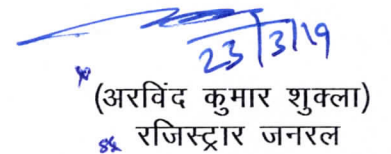 23/3/19
(अरविंद कुमार शुक्ला)
रजिस्ट्रार जनरल